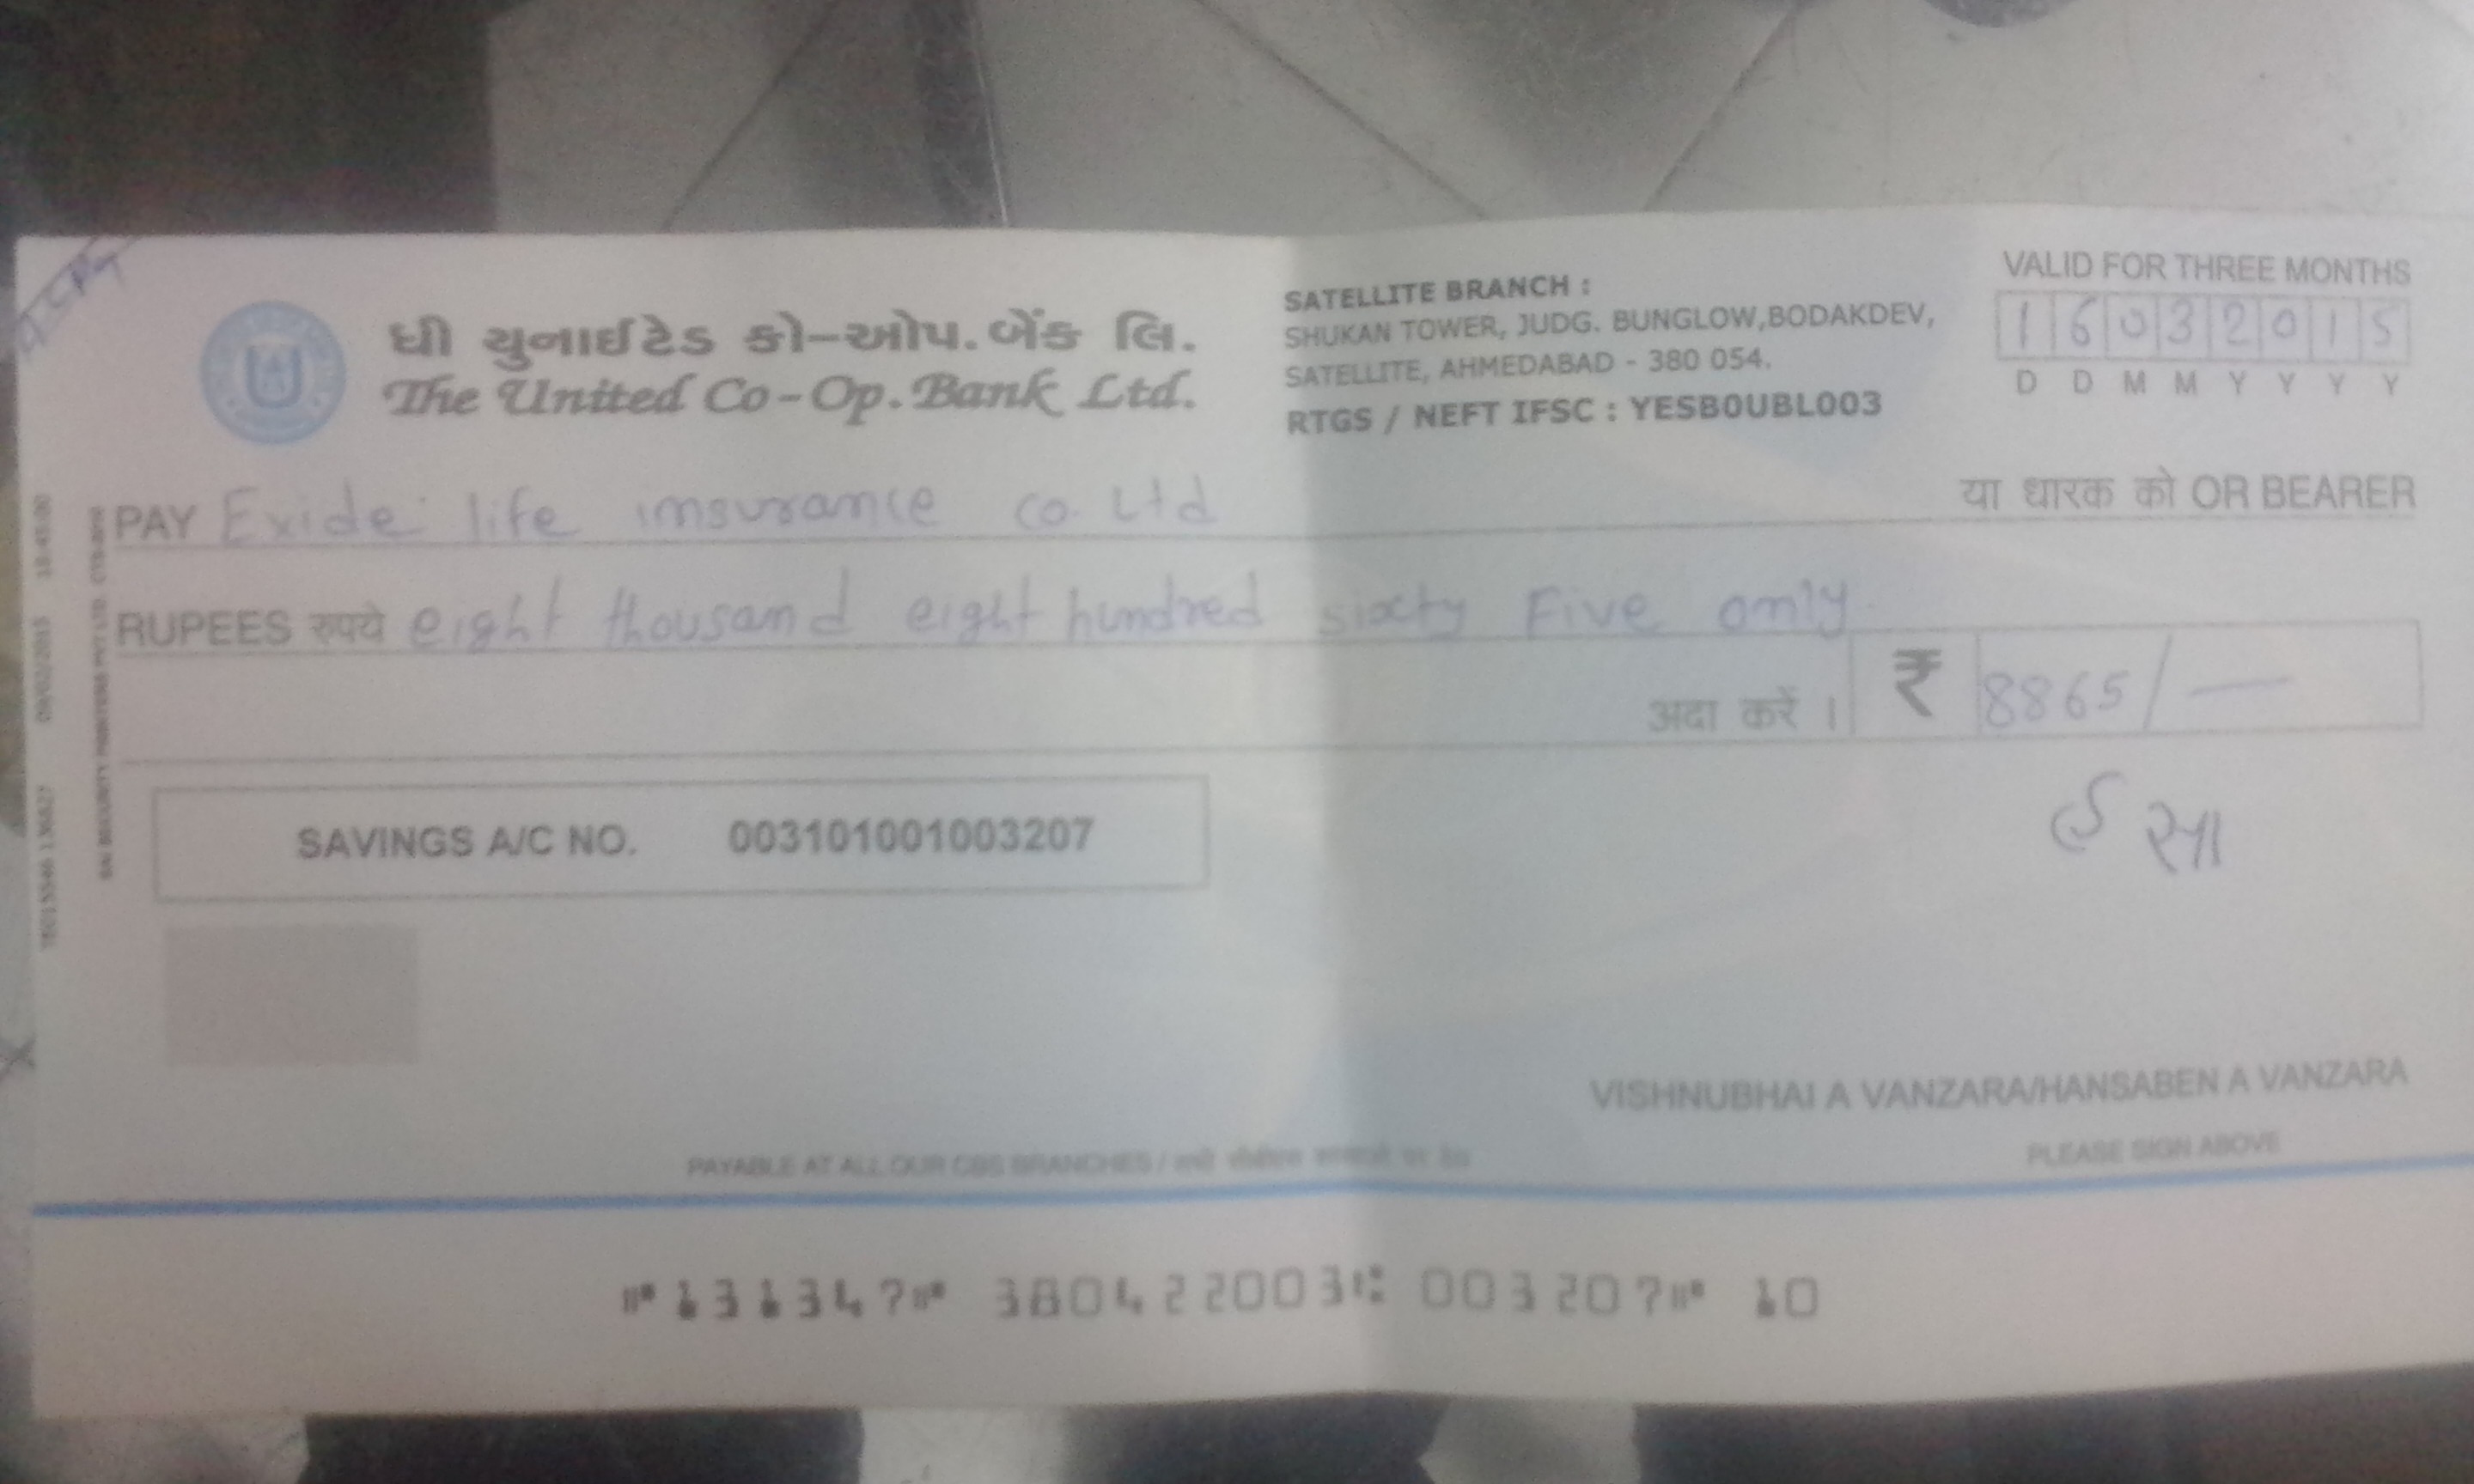 A/C Pay
ધી યુનાઈટેડ કો-ઓપ.બેંક લિ.
The United Co-Op. Bank Ltd.
SATELLITE BRANCH :
SHUKAN TOWER, JUDG. BUNGLOW,BODAKDEV,
SATELLITE, AHMEDABAD - 380 054.
RTGS / NEFT IFSC : YESB0UBL003
VALID FOR THREE MONTHS
1 6 0 3 2 0 1 5
D D M M Y Y Y Y
PAY Exide life insurance co. Ltd या धारक को OR BEARER
RUPEES रुपये eight thousand eight hundred sixty Five only
अदा करें । ₹ 8865/—
SAVINGS A/C NO. 003101001003207
VISHNUBHAI A VANZARA/HANSABEN A VANZARA
PAYABLE AT ALL OUR CBS BRANCHES /
PLEASE SIGN ABOVE
⑈131347⑈ 380422003⑆ 003207⑈ 10